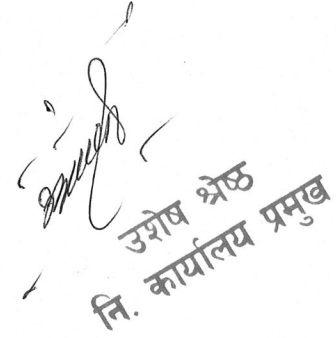 उशेष श्रेष्ठ
नि. कार्यालय प्रमुख